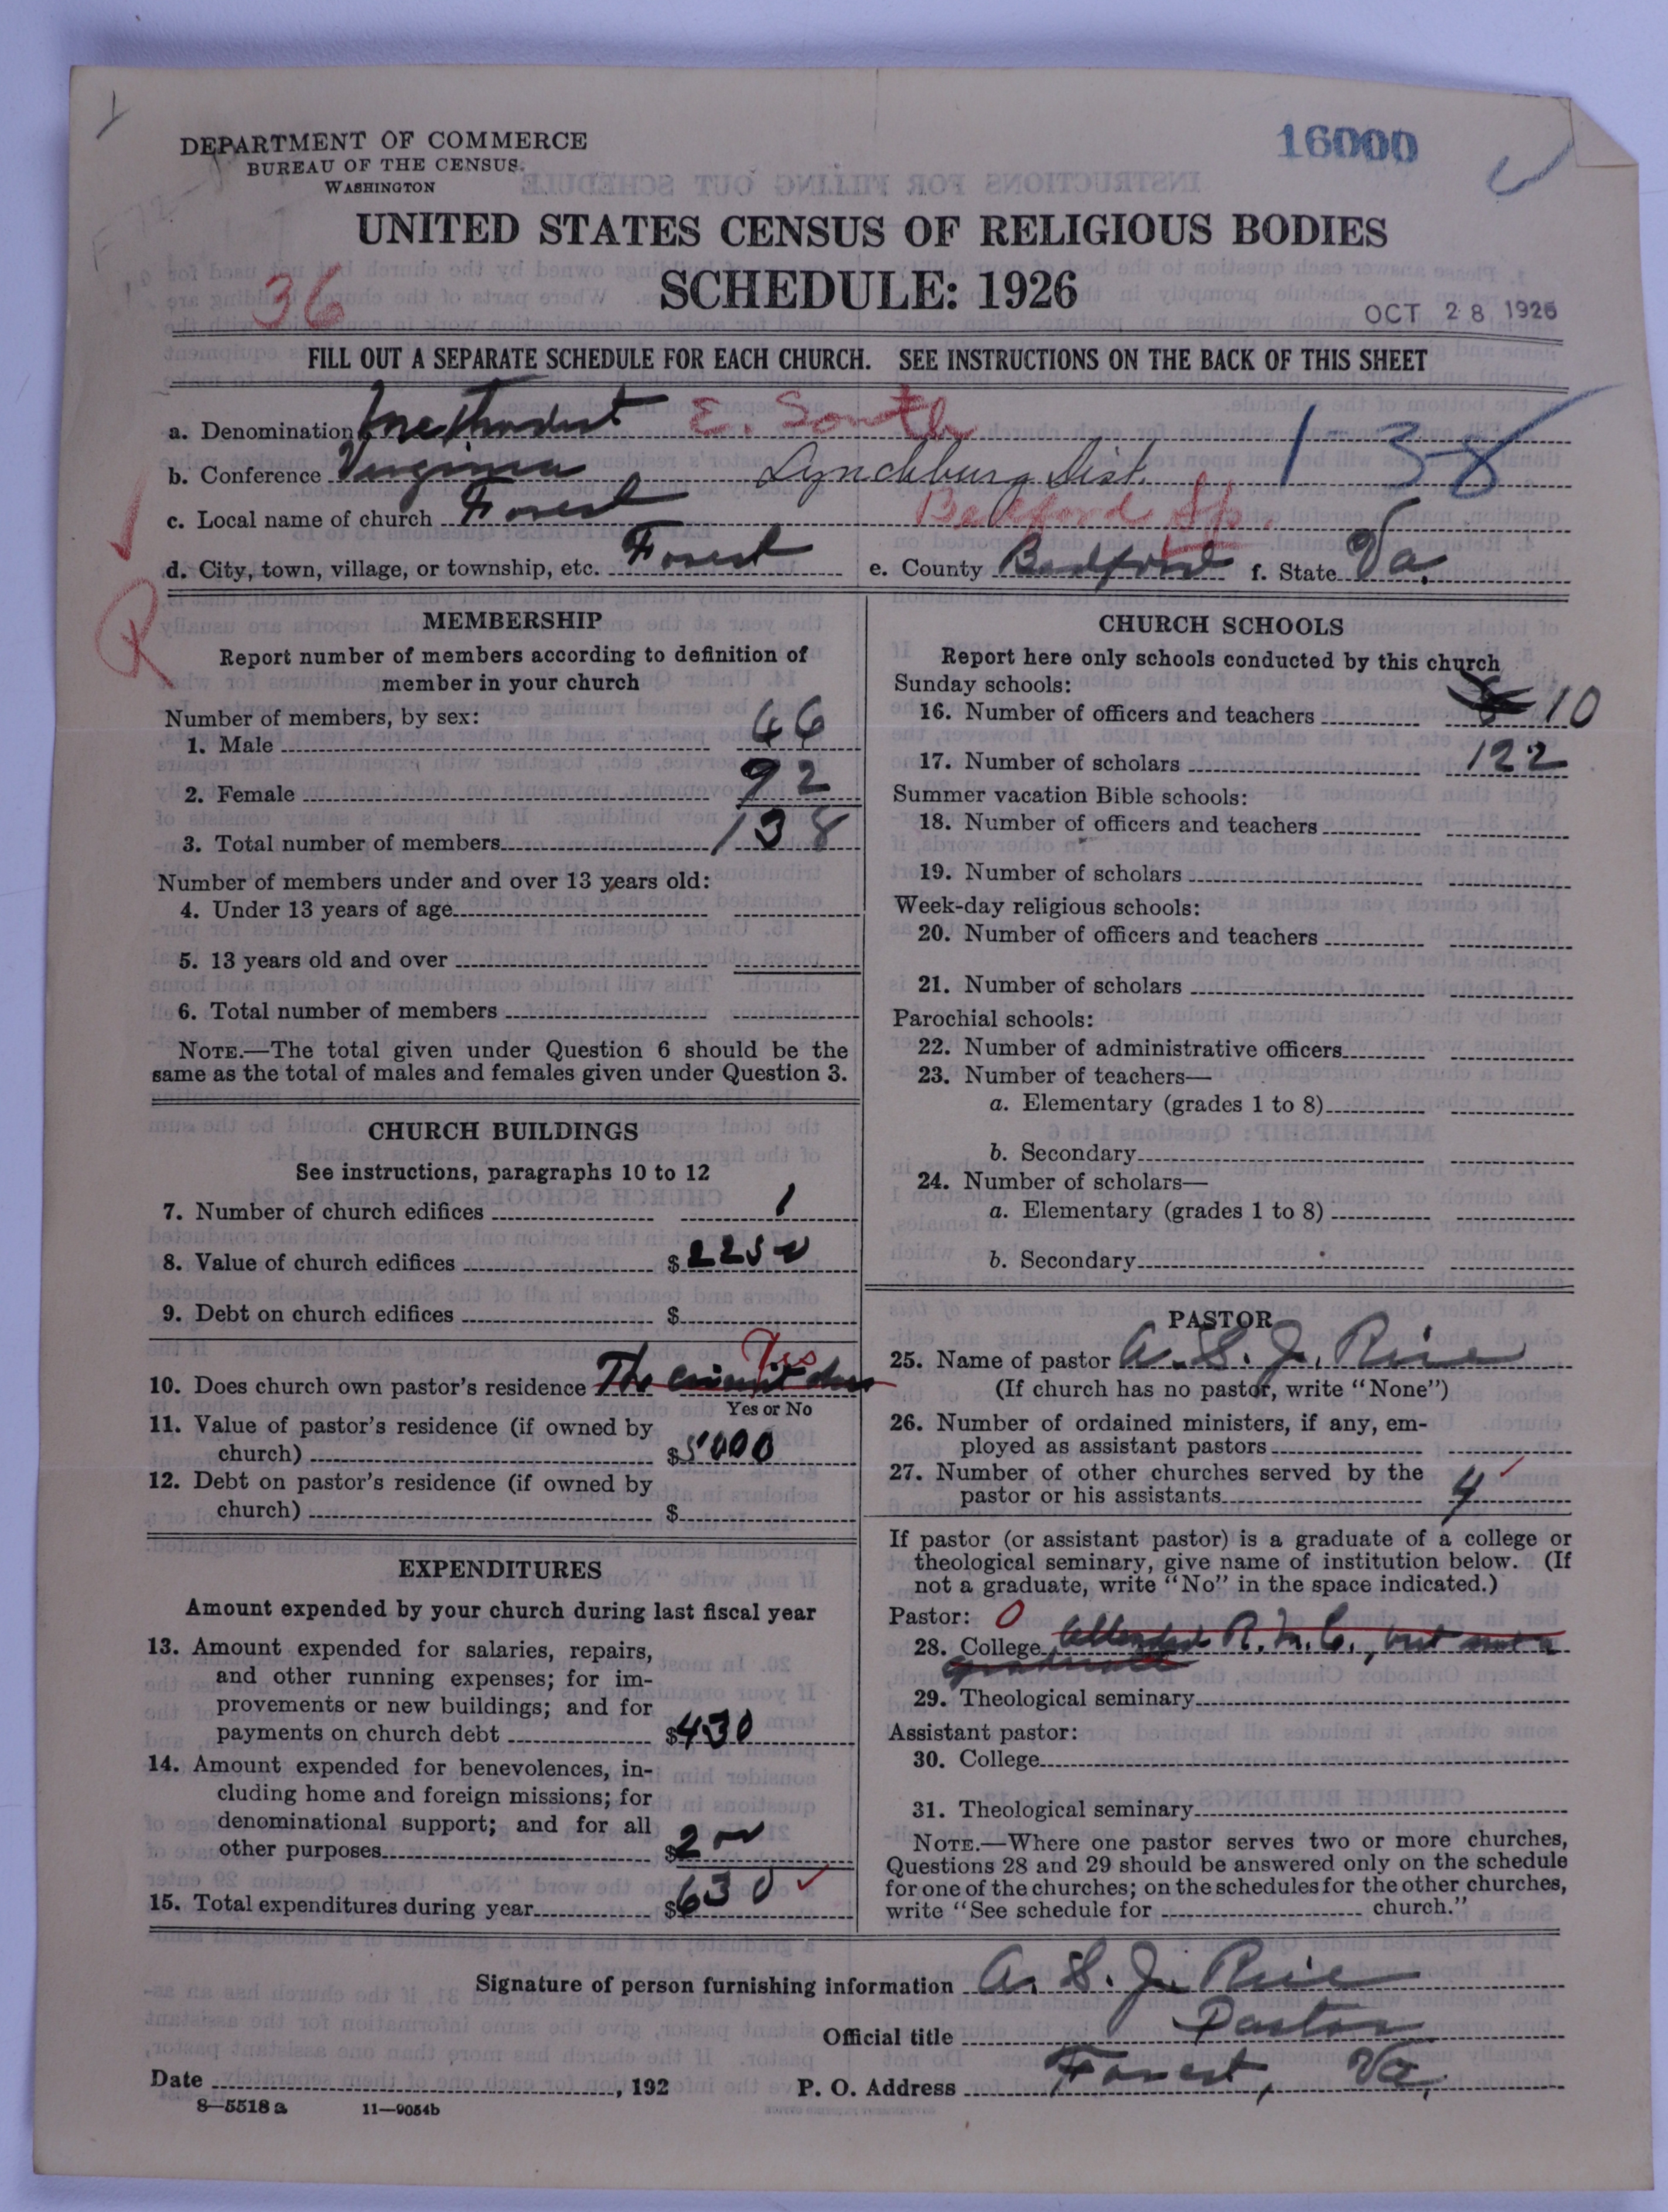 16000
DEPARTMENT OF COMMERCE
BUREAU OF THE CENSUS
WASHINGTON
UNITED STATES CENSUS OF RELIGIOUS BODIES
SCHEDULE: 1926
36
OCT 28 1926
FILL OUT A SEPARATE SCHEDULE FOR EACH CHURCH. SEE INSTRUCTIONS ON THE BACK OF THIS SHEET
a. Denomination Methodist E. South
1-38
b. Conference Virginia Lynchburg Dist.
c. Local name of church Forest Bedford Sp.
d. City, town, village, or township, etc. Forest e. County Bedford f. State Va.
R
MEMBERSHIP
Report number of members according to definition of
member in your church
Number of members, by sex:
1. Male 46
2. Female 92
3. Total number of members 138
Number of members under and over 13 years old:
4. Under 13 years of age
5. 13 years old and over
6. Total number of members
NOTE.—The total given under Question 6 should be the
same as the total of males and females given under Question 3.
CHURCH BUILDINGS
See instructions, paragraphs 10 to 12
7. Number of church edifices 1
8. Value of church edifices $2250
9. Debt on church edifices $
Yes
10. Does church own pastor's residence The circuit does
Yes or No
11. Value of pastor's residence (if owned by
church) $5000
12. Debt on pastor's residence (if owned by
church) $
EXPENDITURES
Amount expended by your church during last fiscal year
13. Amount expended for salaries, repairs,
and other running expenses; for im-
provements or new buildings; and for
payments on church debt $430
14. Amount expended for benevolences, in-
cluding home and foreign missions; for
denominational support; and for all
other purposes $200
15. Total expenditures during year $630
CHURCH SCHOOLS
Report here only schools conducted by this church
Sunday schools:
16. Number of officers and teachers 10
17. Number of scholars 122
Summer vacation Bible schools:
18. Number of officers and teachers
19. Number of scholars
Week-day religious schools:
20. Number of officers and teachers
21. Number of scholars
Parochial schools:
22. Number of administrative officers
23. Number of teachers—
a. Elementary (grades 1 to 8)
b. Secondary
24. Number of scholars—
a. Elementary (grades 1 to 8)
b. Secondary
PASTOR
25. Name of pastor A. S. J. Rice
(If church has no pastor, write "None")
26. Number of ordained ministers, if any, em-
ployed as assistant pastors
27. Number of other churches served by the
pastor or his assistants 4
If pastor (or assistant pastor) is a graduate of a college or
theological seminary, give name of institution below. (If
not a graduate, write "No" in the space indicated.)
Pastor: 0
28. College attended R. M. C., but not a
graduate
29. Theological seminary
Assistant pastor:
30. College
31. Theological seminary
NOTE.—Where one pastor serves two or more churches,
Questions 28 and 29 should be answered only on the schedule
for one of the churches; on the schedules for the other churches,
write "See schedule for church."
Signature of person furnishing information A. S. J. Rice
Official title Pastor
Date , 192 P. O. Address Forest, Va.
8—5518a 11—9054b